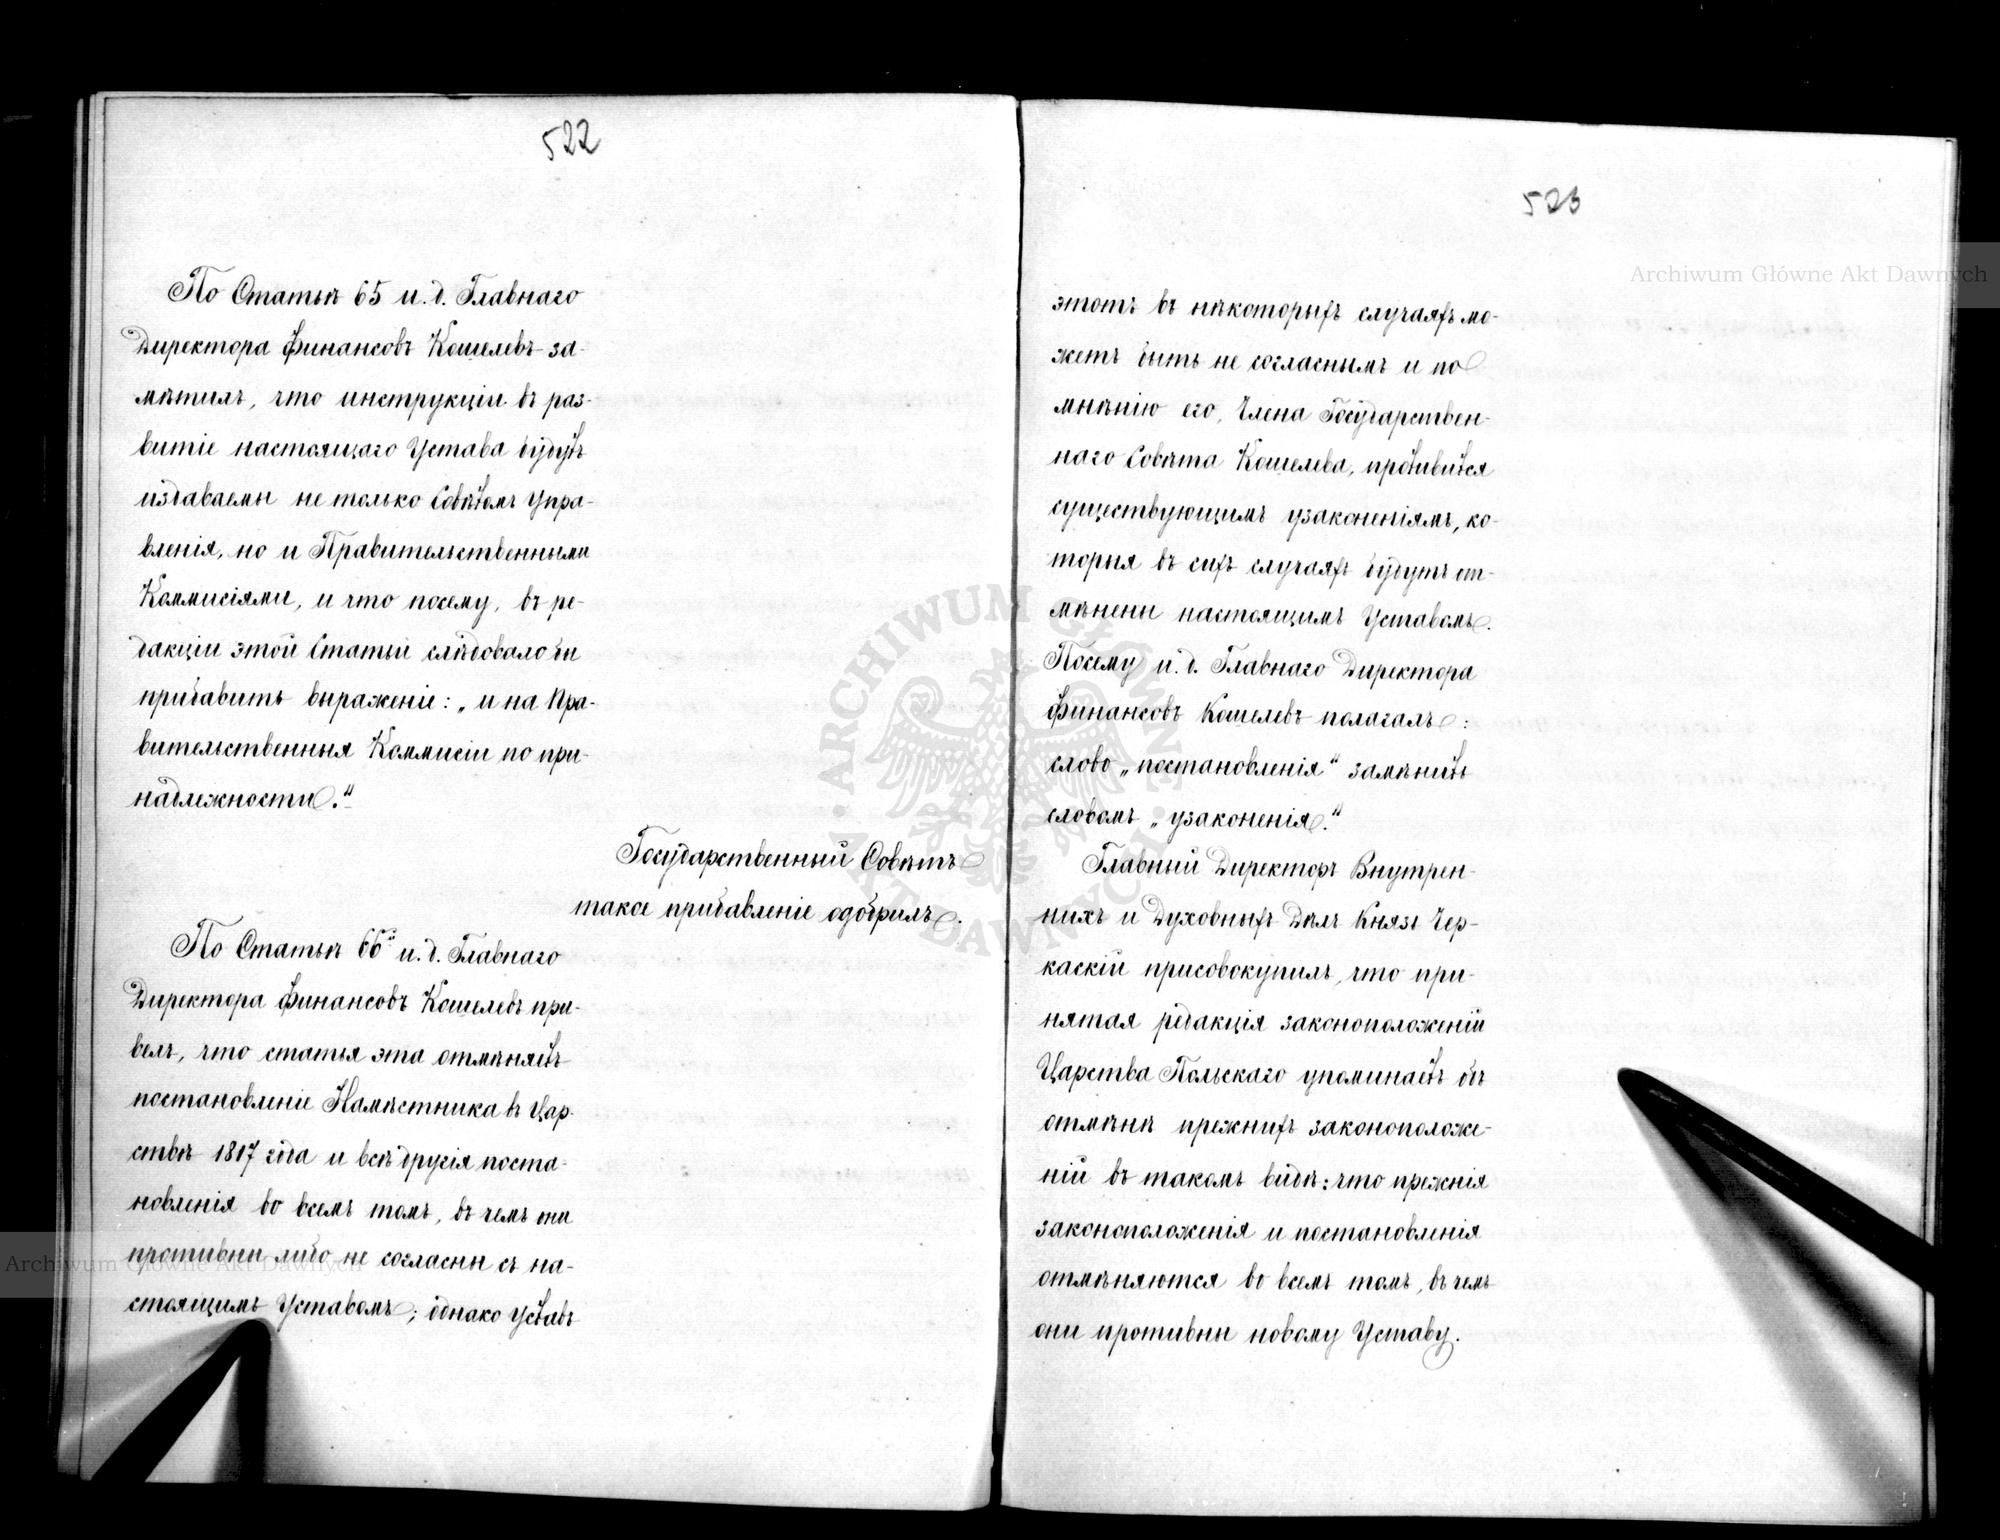 522
По Статьѣ 65 и. д. Главнаго
Директора Финансовъ Кошелевъ за-
мѣтилъ, что инструкціи въ раз-
витіе настоящаго Устава будутъ
издаваемы не только Совѣтомъ Упра-
вленія, но и Правительственными
Коммисіями, и что посему, въ ре-
дакціи этой Статьи слѣдовало бы
прибавить выраженіе: „и на Пра-
вительственныя Коммисіи по при-
надлежности."
Государственный Совѣтъ
такое прибавленіе одобрилъ.
По Статьѣ 66й и. д. Главнаго
Директора Финансовъ Кошелевъ при-
велъ, что статья эта отмѣняетъ
постановленіе Намѣстника въ Цар-
ствѣ 1817 года и всѣ другія поста-
новленія во всемъ томъ, въ чемъ они
противны либо не согласны съ на-
стоящимъ Уставомъ; однако Уставъ
523
этотъ въ нѣкоторыхъ случаяхъ мо-
жетъ быть не согласнымъ и по
мнѣнію его, Члена Государствен-
наго Совѣта Кошелева, противится
существующимъ узаконеніямъ, ко-
торыя въ сихъ случаяхъ будутъ от-
мѣнены настоящимъ Уставомъ.
Посему и. д. Главнаго Директора
Финансовъ Кошелевъ полагалъ:
слово „постановленія" замѣнить
словомъ „узаконенія."
Главный Директоръ Внутрен-
нихъ и Духовныхъ Дѣлъ Князь Чер-
каскій присовокупилъ, что при-
нятая редакція законоположеній
Царства Польскаго упоминаетъ объ
отмѣнѣ прежнихъ законоположе-
ній въ такомъ видѣ: что прежнія
законоположенія и постановленія
отмѣняются во всемъ томъ, въ чемъ
они противны новому Уставу.
Archiwum Główne Akt Dawnych
Archiwum Główne Akt Dawnych
ARCHIWUM GŁÓWNE AKT DAWNYCH